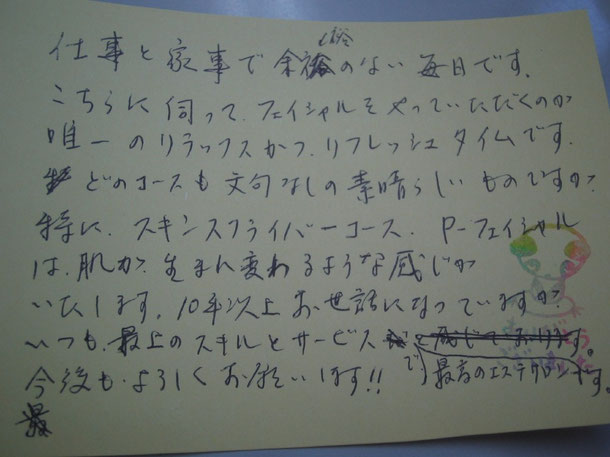 仕事と家事で余裕のない毎日です。
こちらに伺って、フェイシャルをやっていただくのが
唯一のリラックスかつ、リフレッシュタイムです。
どのコースも文句なしの素晴らしいものですが、
特に、スキンスフライバーコース、P-フェイシャル
は、肌が生まれ変わるような感じが
いたします。10年以上お世話になっていますが
いつも、最上のスキルとサービス
で、最高のエステサロンです。
今後も、よろしくお願いします!!
最